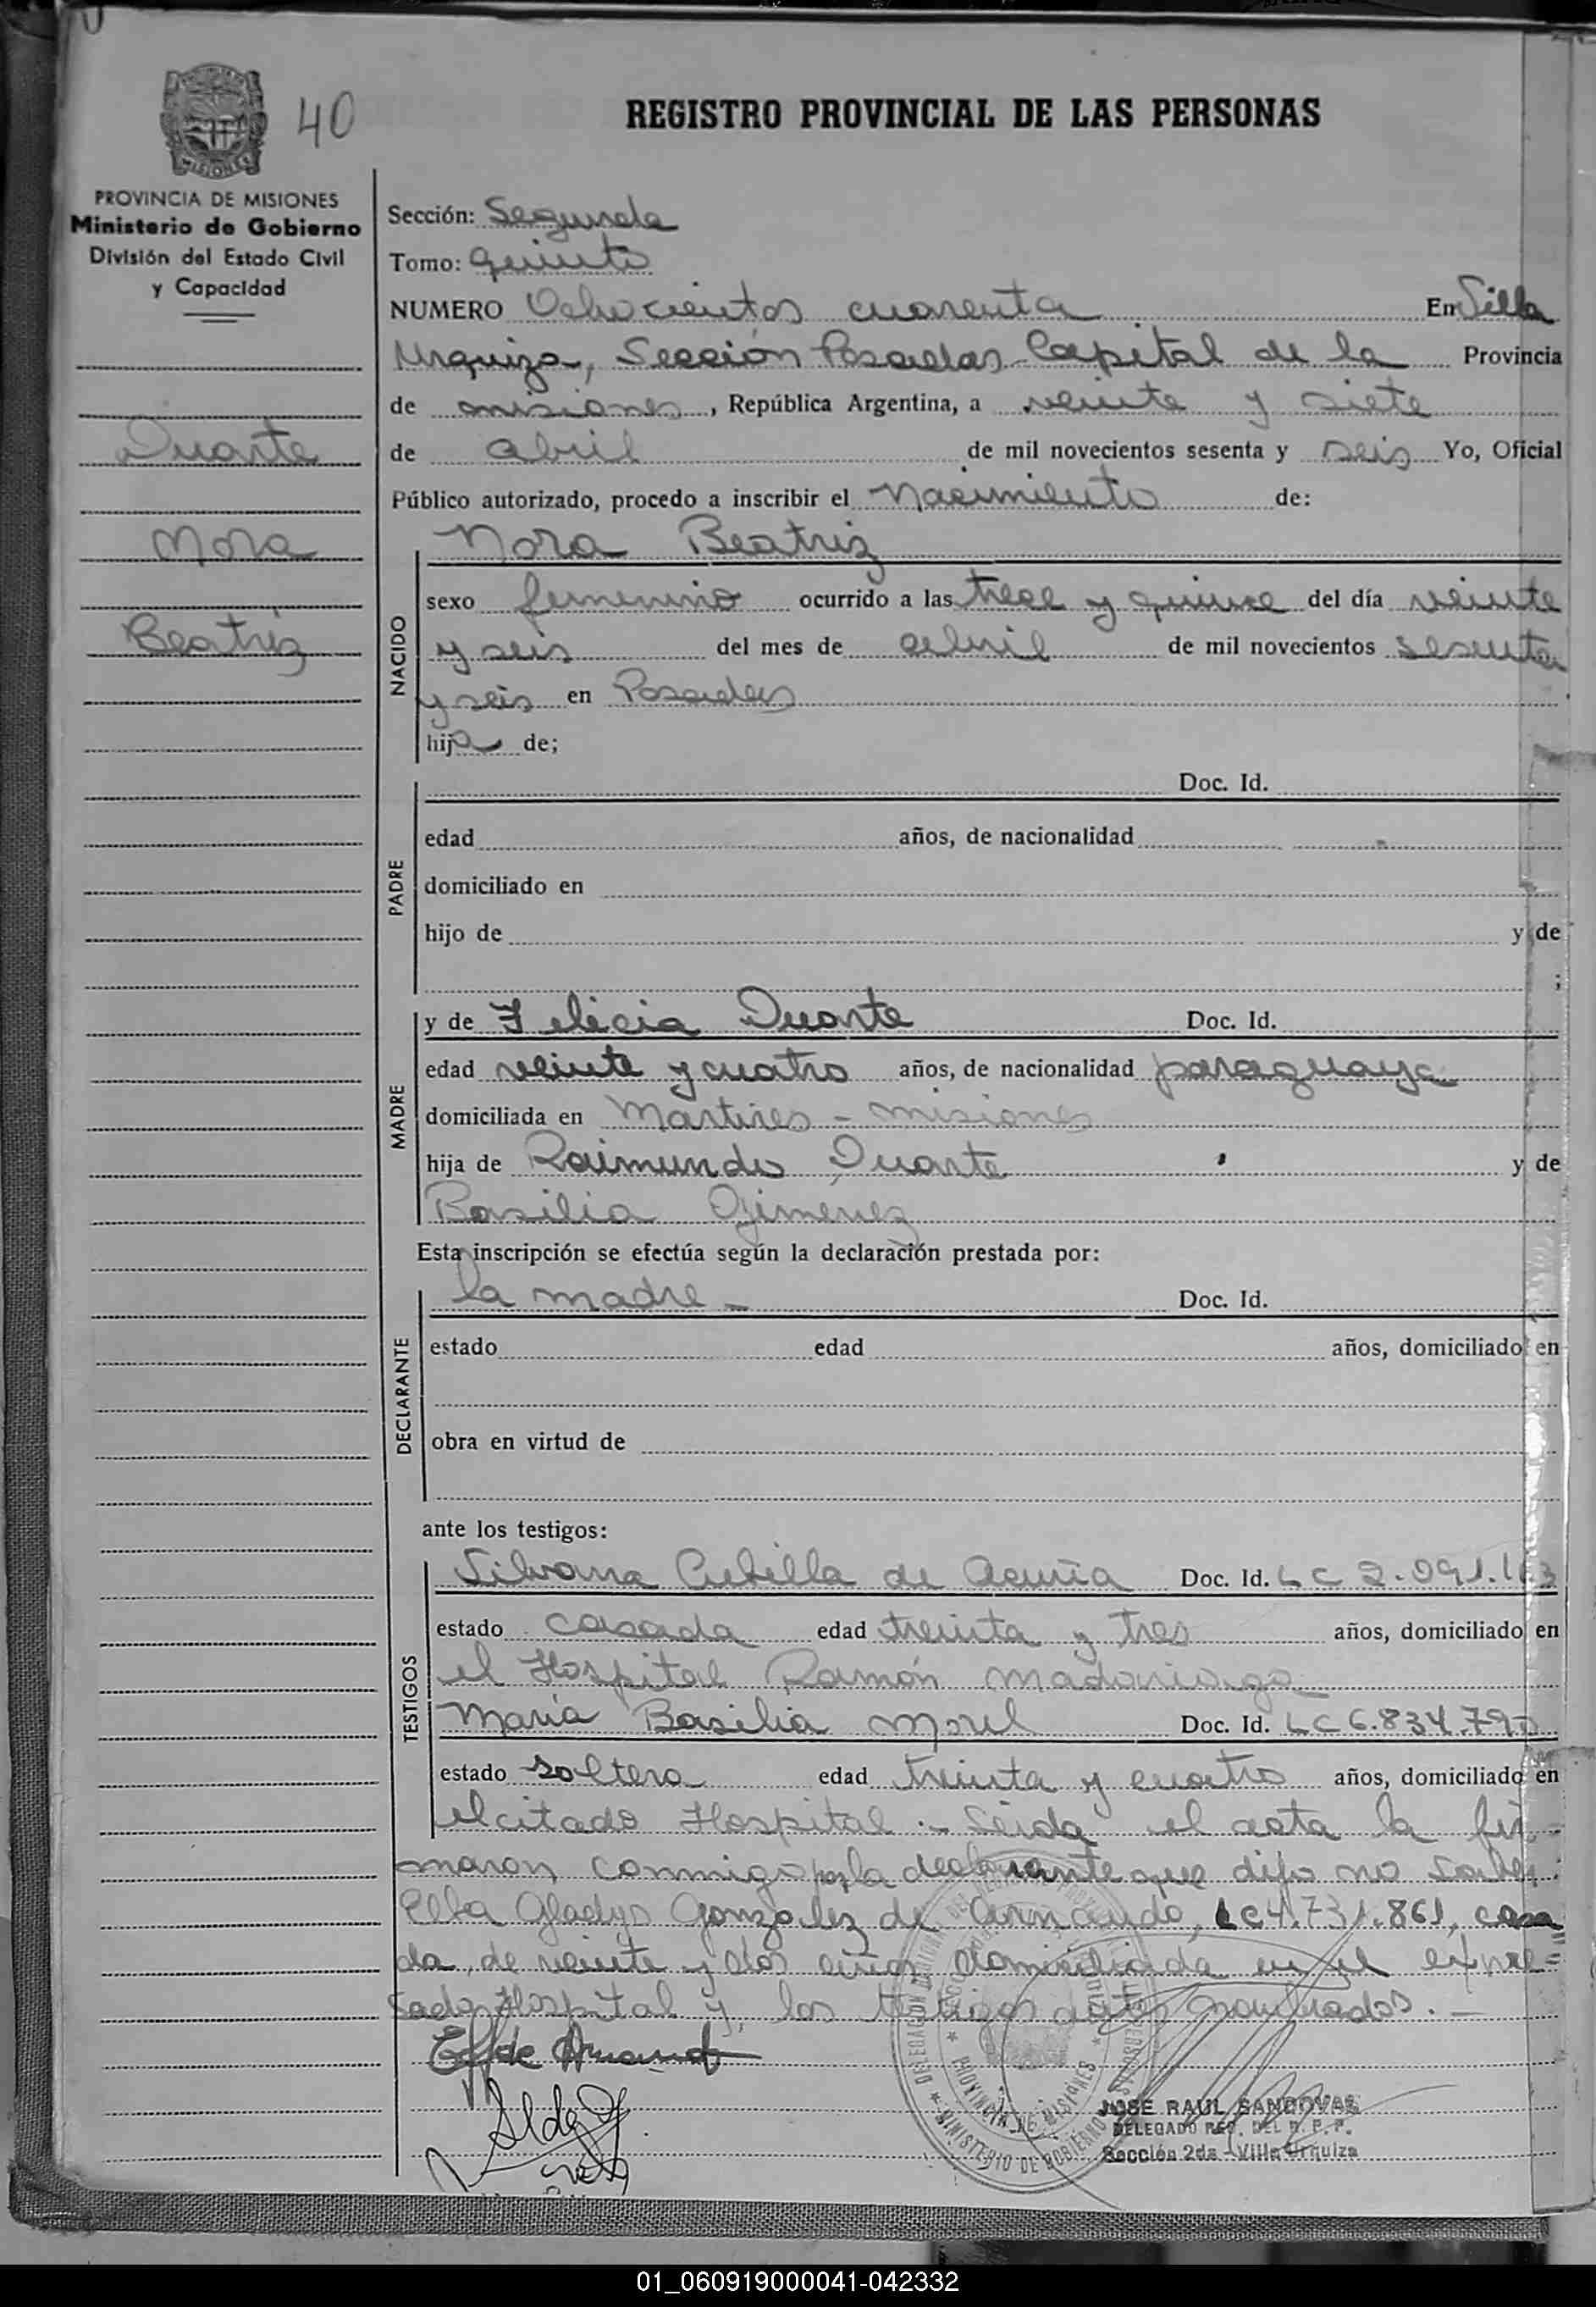 40
REGISTRO PROVINCIAL DE LAS PERSONAS
MISIONES
PROVINCIA DE MISIONES
Ministerio de Gobierno
División del Estado Civil
y Capacidad
Duarte
Nora
Beatriz
Sección: Segunda
Tomo: Quinto
NUMERO Ochocientos cuarenta En Villa
Urquiza, Sección Posadas Capital de la Provincia
de misiones, República Argentina, a veinte y siete
de abril de mil novecientos sesenta y seis Yo, Oficial
Público autorizado, procedo a inscribir el Nacimiento de:
NACIDO
Nora Beatriz
sexo femenino ocurrido a las trece y quince del día veinte
y seis del mes de abril de mil novecientos sesenta
y seis en Posadas
hija de;
PADRE
Doc. Id.
edad años, de nacionalidad
domiciliado en
hijo de y de
;
MADRE
y de Felicia Duarte Doc. Id.
edad veinte y cuatro años, de nacionalidad paraguaya
domiciliada en Martires - misiones
hija de Raimundo Duarte y de
Basilia Gimenez
Esta inscripción se efectúa según la declaración prestada por:
DECLARANTE
la madre - Doc. Id.
estado edad años, domiciliado en
obra en virtud de
ante los testigos:
TESTIGOS
Silvana de Acuña Doc. Id. LC 2.091.
estado casada edad treinta y tres años, domiciliado en
el Hospital Ramón Madariaga
María Basilia Morel Doc. Id. LC 6.834.790
estado soltera edad treinta y cuatro años, domiciliado en
el citado Hospital.- Leida el acta la fir-
maron conmigo por la declarante que dijo no saber:
Elba Gladys Gonzalez de Armando, LC 4.731.861, casa
da, de veinte y dos años domiciliada en el expre-
sado Hospital y, los testigos antes nombrados.-
E G de Armando
PROVINCIA DE MISIONES
MINISTERIO DE GOBIERNO
JOSE RAUL SANDOVAL
DELEGADO REG. DEL R. P. P.
Sección 2da - Villa Urquiza
01_060919000041-042332